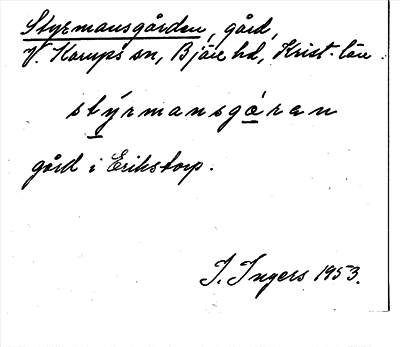 Styrmansgården, gård,
V. Karups sn, Bjäre hd, Krist. län.
stýrmansgå̱ṟen
gård i Erikstorp.
I. Ingers 1953.